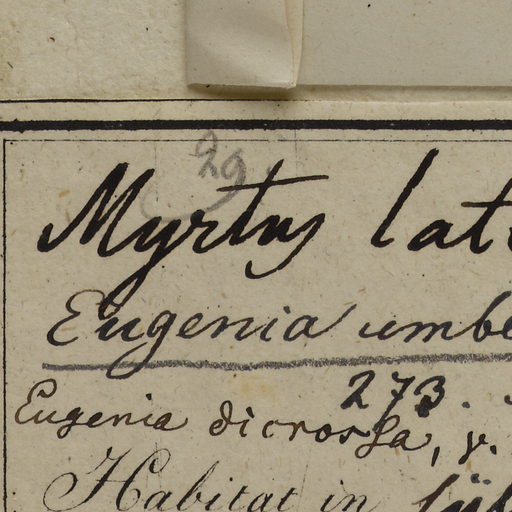 29
Myrtus lat
Eugenia umbe
273.
Eugenia dicrossa, v.
Habitat in